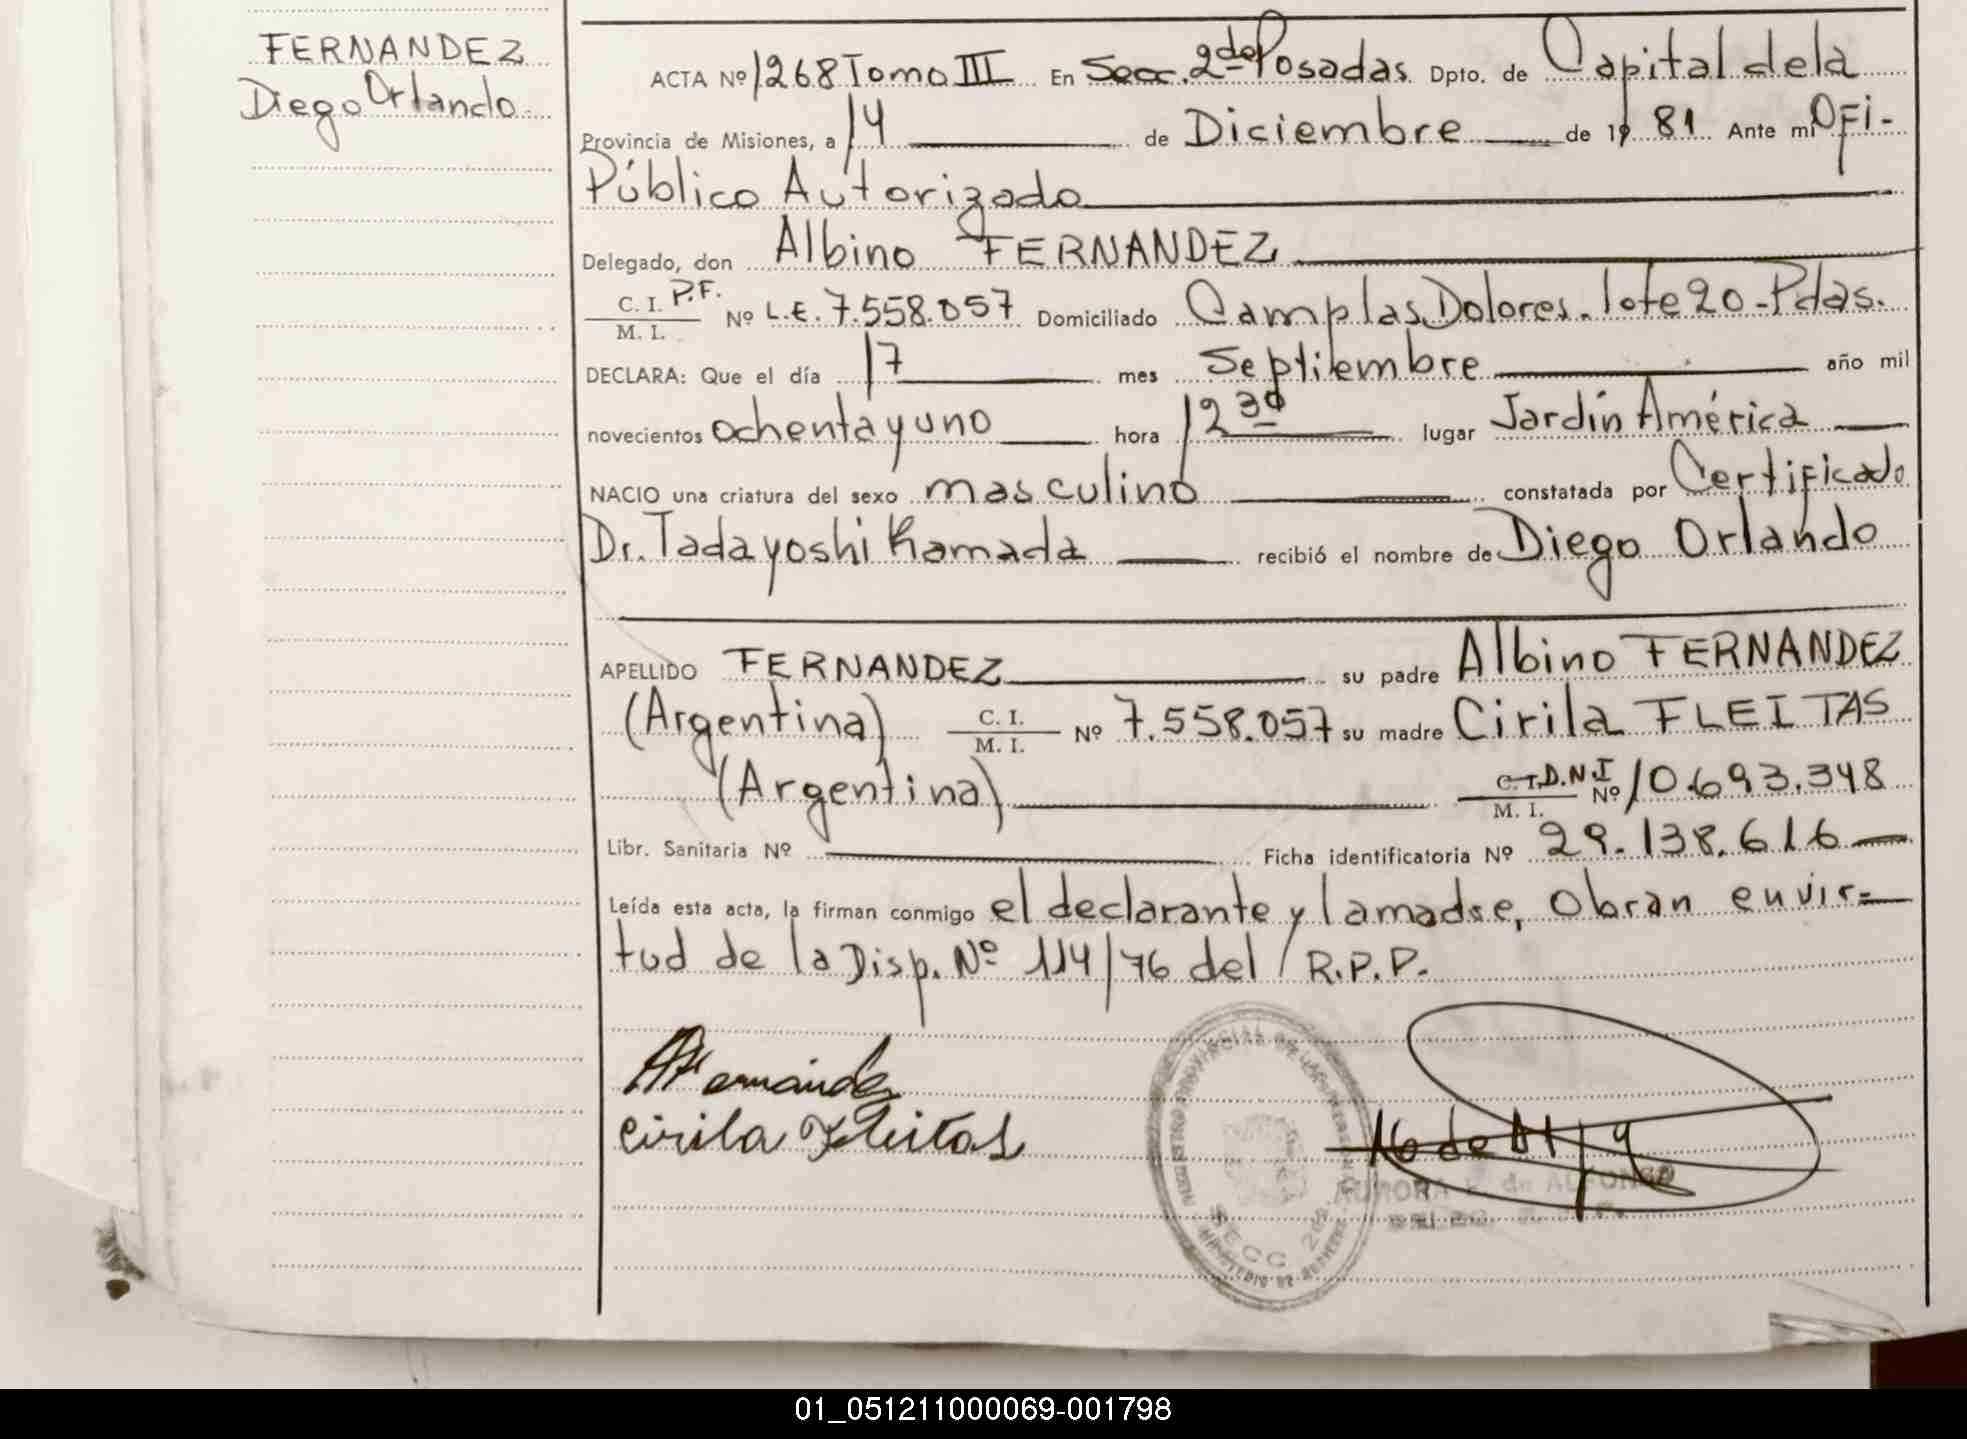 FERNANDEZ
Diego Orlando
ACTA Nº 1268 Tomo III En Secc. 2da Posadas Dpto. de Capital de la
Provincia de Misiones, a 14 de Diciembre de 1981 Ante mi Ofi-
Público Autorizado
Delegado, don Albino FERNANDEZ
C. I. P.F.
M. I. Nº L.E. 7.558.057 Domiciliado Camp las Dolores. lote 20 - Pdas.
DECLARA: Que el día 17 mes Septiembre año mil
novecientos ochenta y uno hora 12 30 lugar Jardín América
NACIO una criatura del sexo masculino constatada por Certificado
Dr. Tadayoshi Kamada recibió el nombre de Diego Orlando
APELLIDO FERNANDEZ su padre Albino FERNANDEZ
(Argentina) C. I. M. I. Nº 7.558.057 su madre Cirila FLEITAS
(Argentina) C. I. D.N.I M. I. Nº 10.693.348
Libr. Sanitaria Nº Ficha identificatoria Nº 29.138.616
Leída esta acta, la firman conmigo el declarante y la madre, Obran en vir=
tud de la Disp. Nº 114/76 del R.P.P.
Cirila Fleitas
SECC 2da
AURORA de ALFONSO
01_051211000069-001798